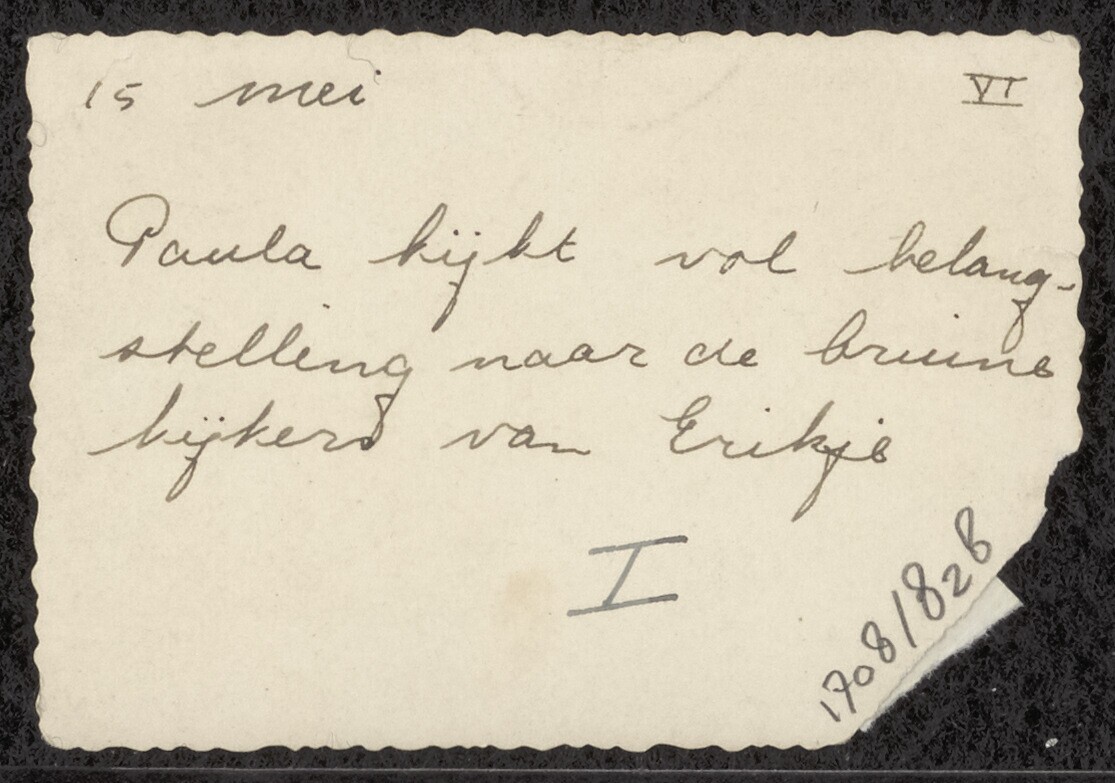 15 mei VI
Paula kijkt vol belang-
stelling naar de bruine
kijkers van Erikje
I
1708/828